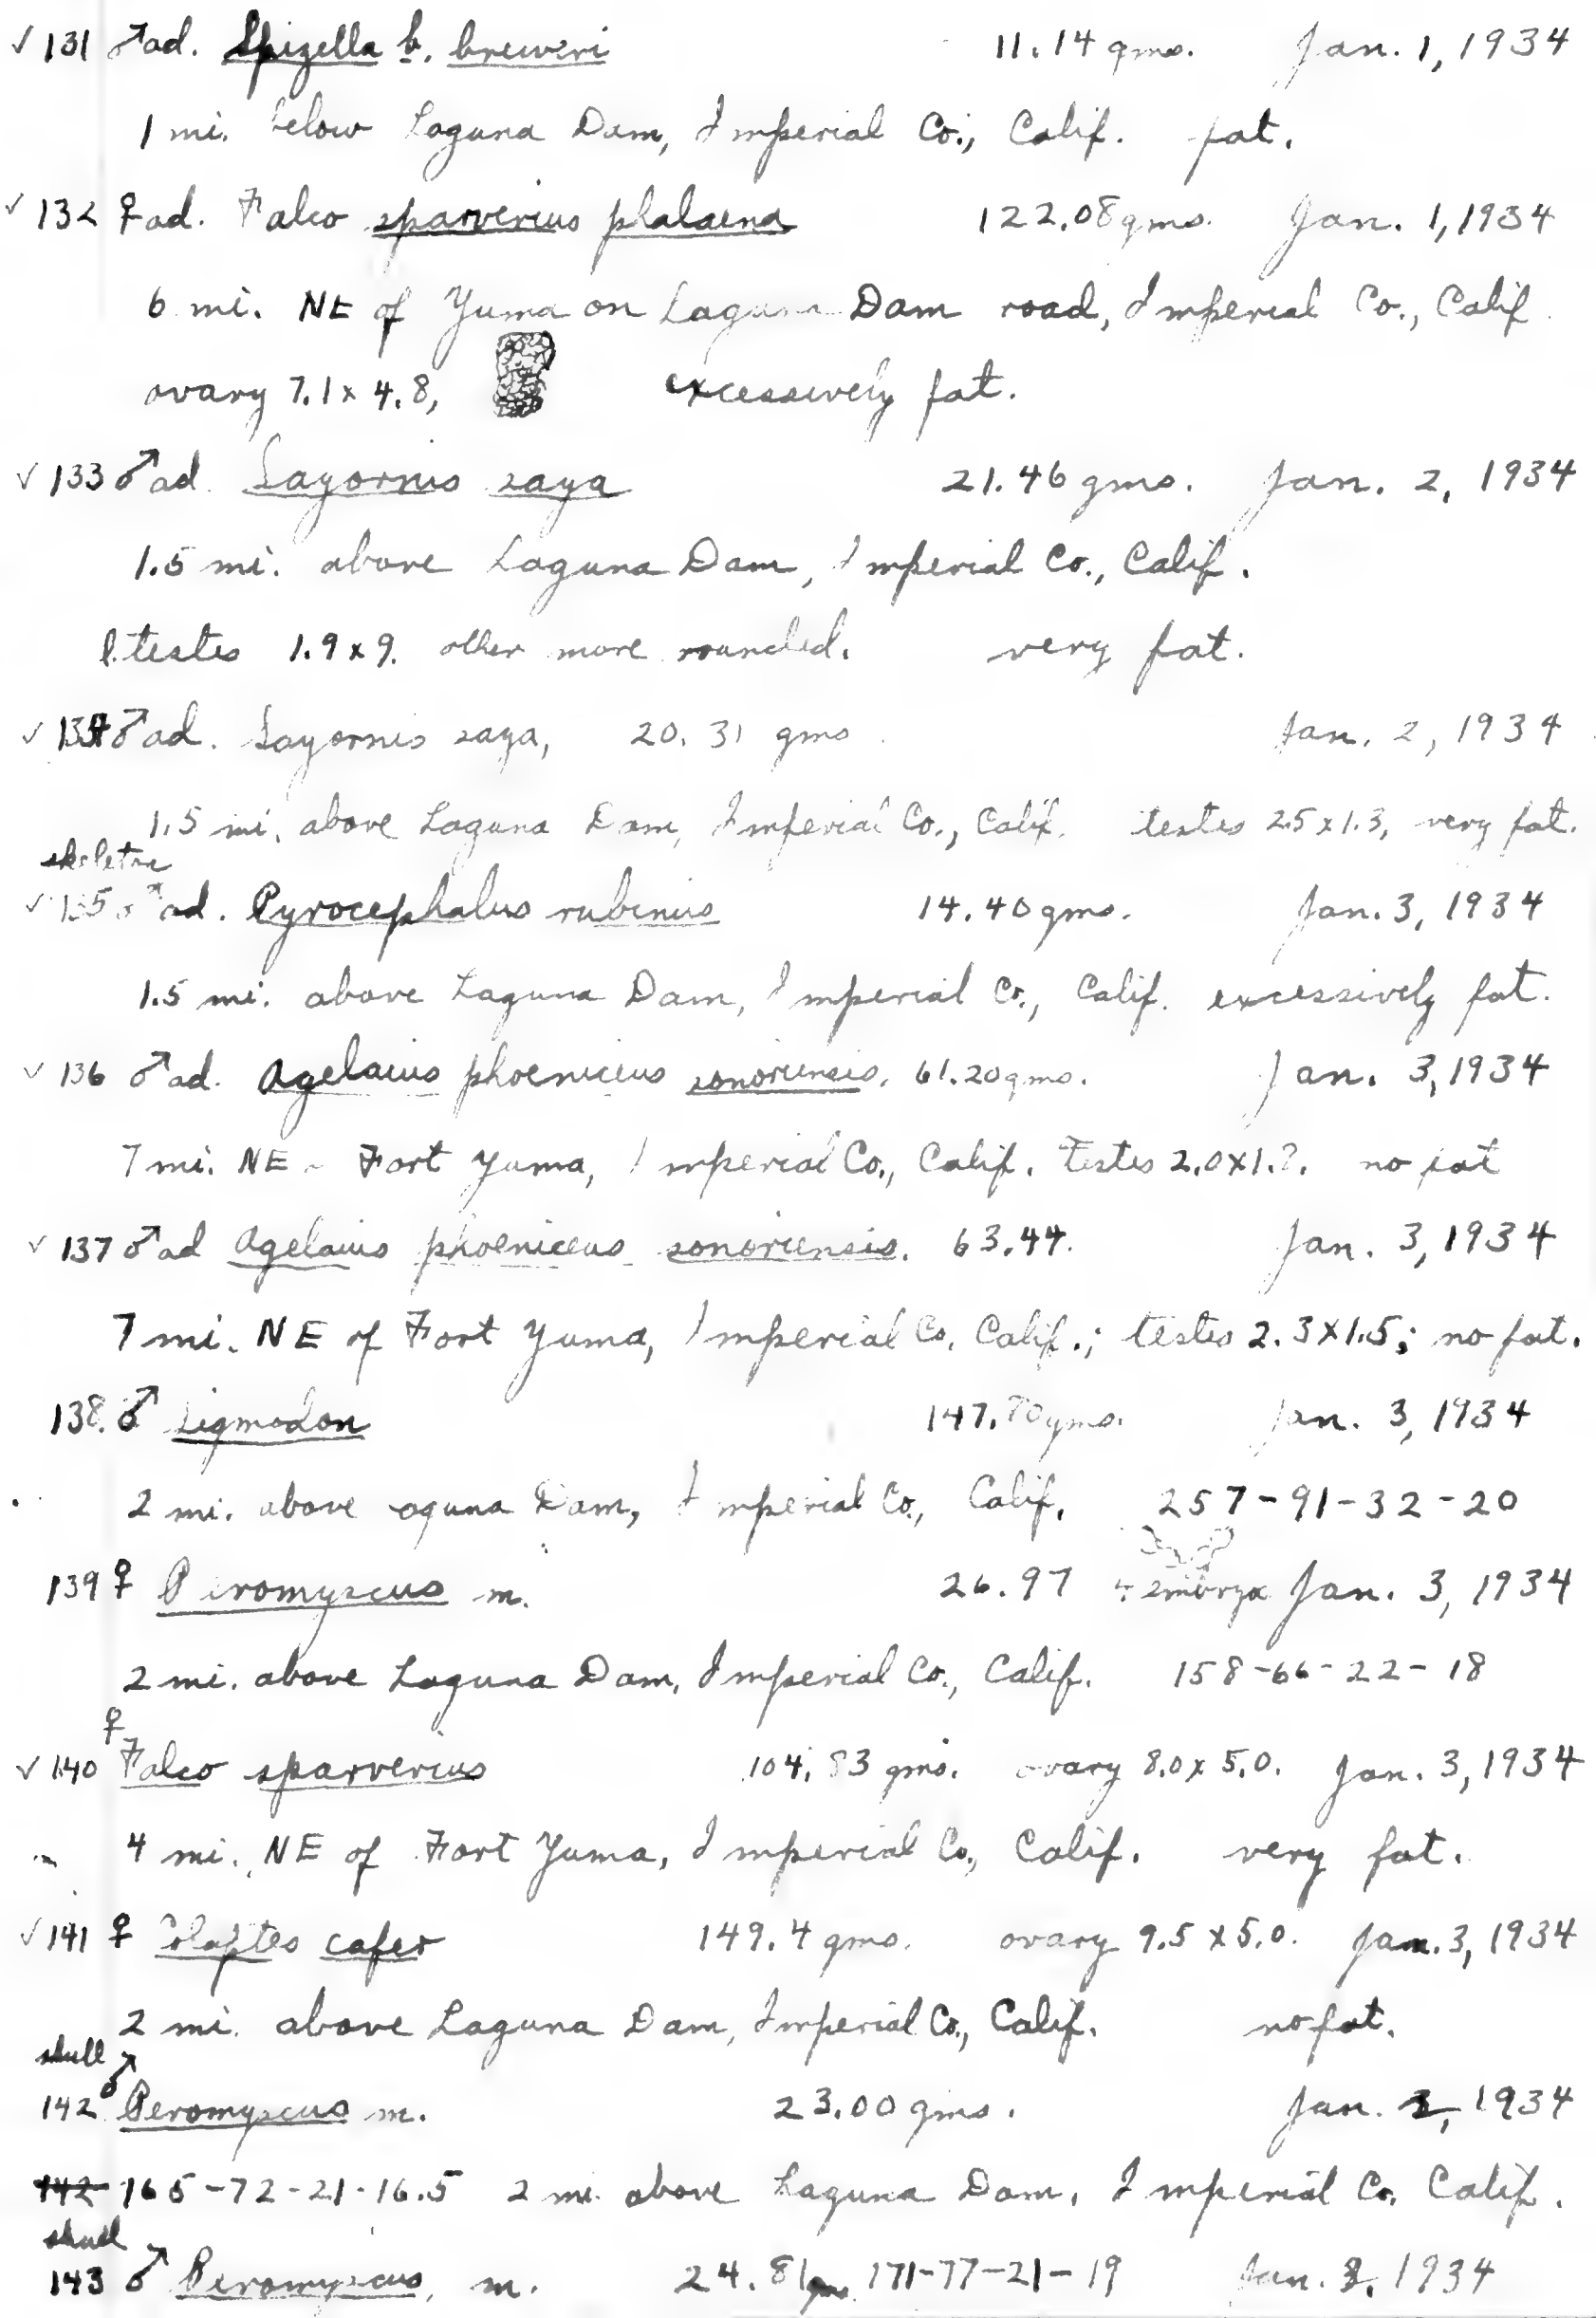 ✓ 131 ♂ad. Spizella b. breweri 11.14 gms. Jan. 1, 1934
1 mi. below Laguna Dam, Imperial Co., Calif. fat.
✓ 132 ♀ad. Falco sparverius phalaena 122.08 gms. Jan. 1, 1934
6 mi. NE of Yuma on Laguna Dam road, Imperial Co., Calif.
ovary 7.1 x 4.8, excessively fat.
✓ 133 ♂ad. Sayornis saya 21.46 gms. Jan. 2, 1934
1.5 mi. above Laguna Dam, Imperial Co., Calif.
l. testes 1.9 x 9. other more rounded. very fat.
✓ 134 ♂ad. Sayornis saya, 20.31 gms. Jan. 2, 1934
1.5 mi. above Laguna Dam, Imperial Co., Calif. testes 2.5 x 1.3, very fat.
skeleton
✓ 135 ♂ad. Pyrocephalus rubinus 14.40 gms. Jan. 3, 1934
1.5 mi. above Laguna Dam, Imperial Co., Calif. excessively fat.
✓ 136 ♂ad. Agelaius phoeniceus sonoriensis. 61.20 gms. Jan. 3, 1934
7 mi. NE Fort Yuma, Imperial Co., Calif. testes 2.0 x no fat
✓ 137 ♂ad Agelaius phoeniceus sonoriensis. 63.44. Jan. 3, 1934
7 mi. NE of Fort Yuma, Imperial Co. Calif.; testes 2.3 x 1.5; no fat.
138. ♂ Sigmodon 147.70 gms. Jan. 3, 1934
2 mi. above aguna Dam, Imperial Co., Calif. 257-91-32-20
139 ♀ Peromyscus m. 26.97 embryo Jan. 3, 1934
2 mi. above Laguna Dam, Imperial Co., Calif. 158-66-22-18
♀
✓ 140 Falco sparverius 104.83 gms. ovary 8.0 x 5.0. Jan. 3, 1934
4 mi. NE of Fort Yuma, Imperial Co., Calif. very fat.
✓ 141 ♀ Colaptes cafer 149.4 gms. ovary 9.5 x 5.0. Jan. 3, 1934
2 mi. above Laguna Dam, Imperial Co., Calif. no fat.
skull
142 ♂ Peromyscus m. 23.00 gms. Jan. 3, 1934
142 165-72-21-16.5 2 mi. above Laguna Dam, Imperial Co. Calif.
skull
143 ♂ Peromyscus, m. 24.81 gms. 171-77-21-19 Jan. 3, 1934